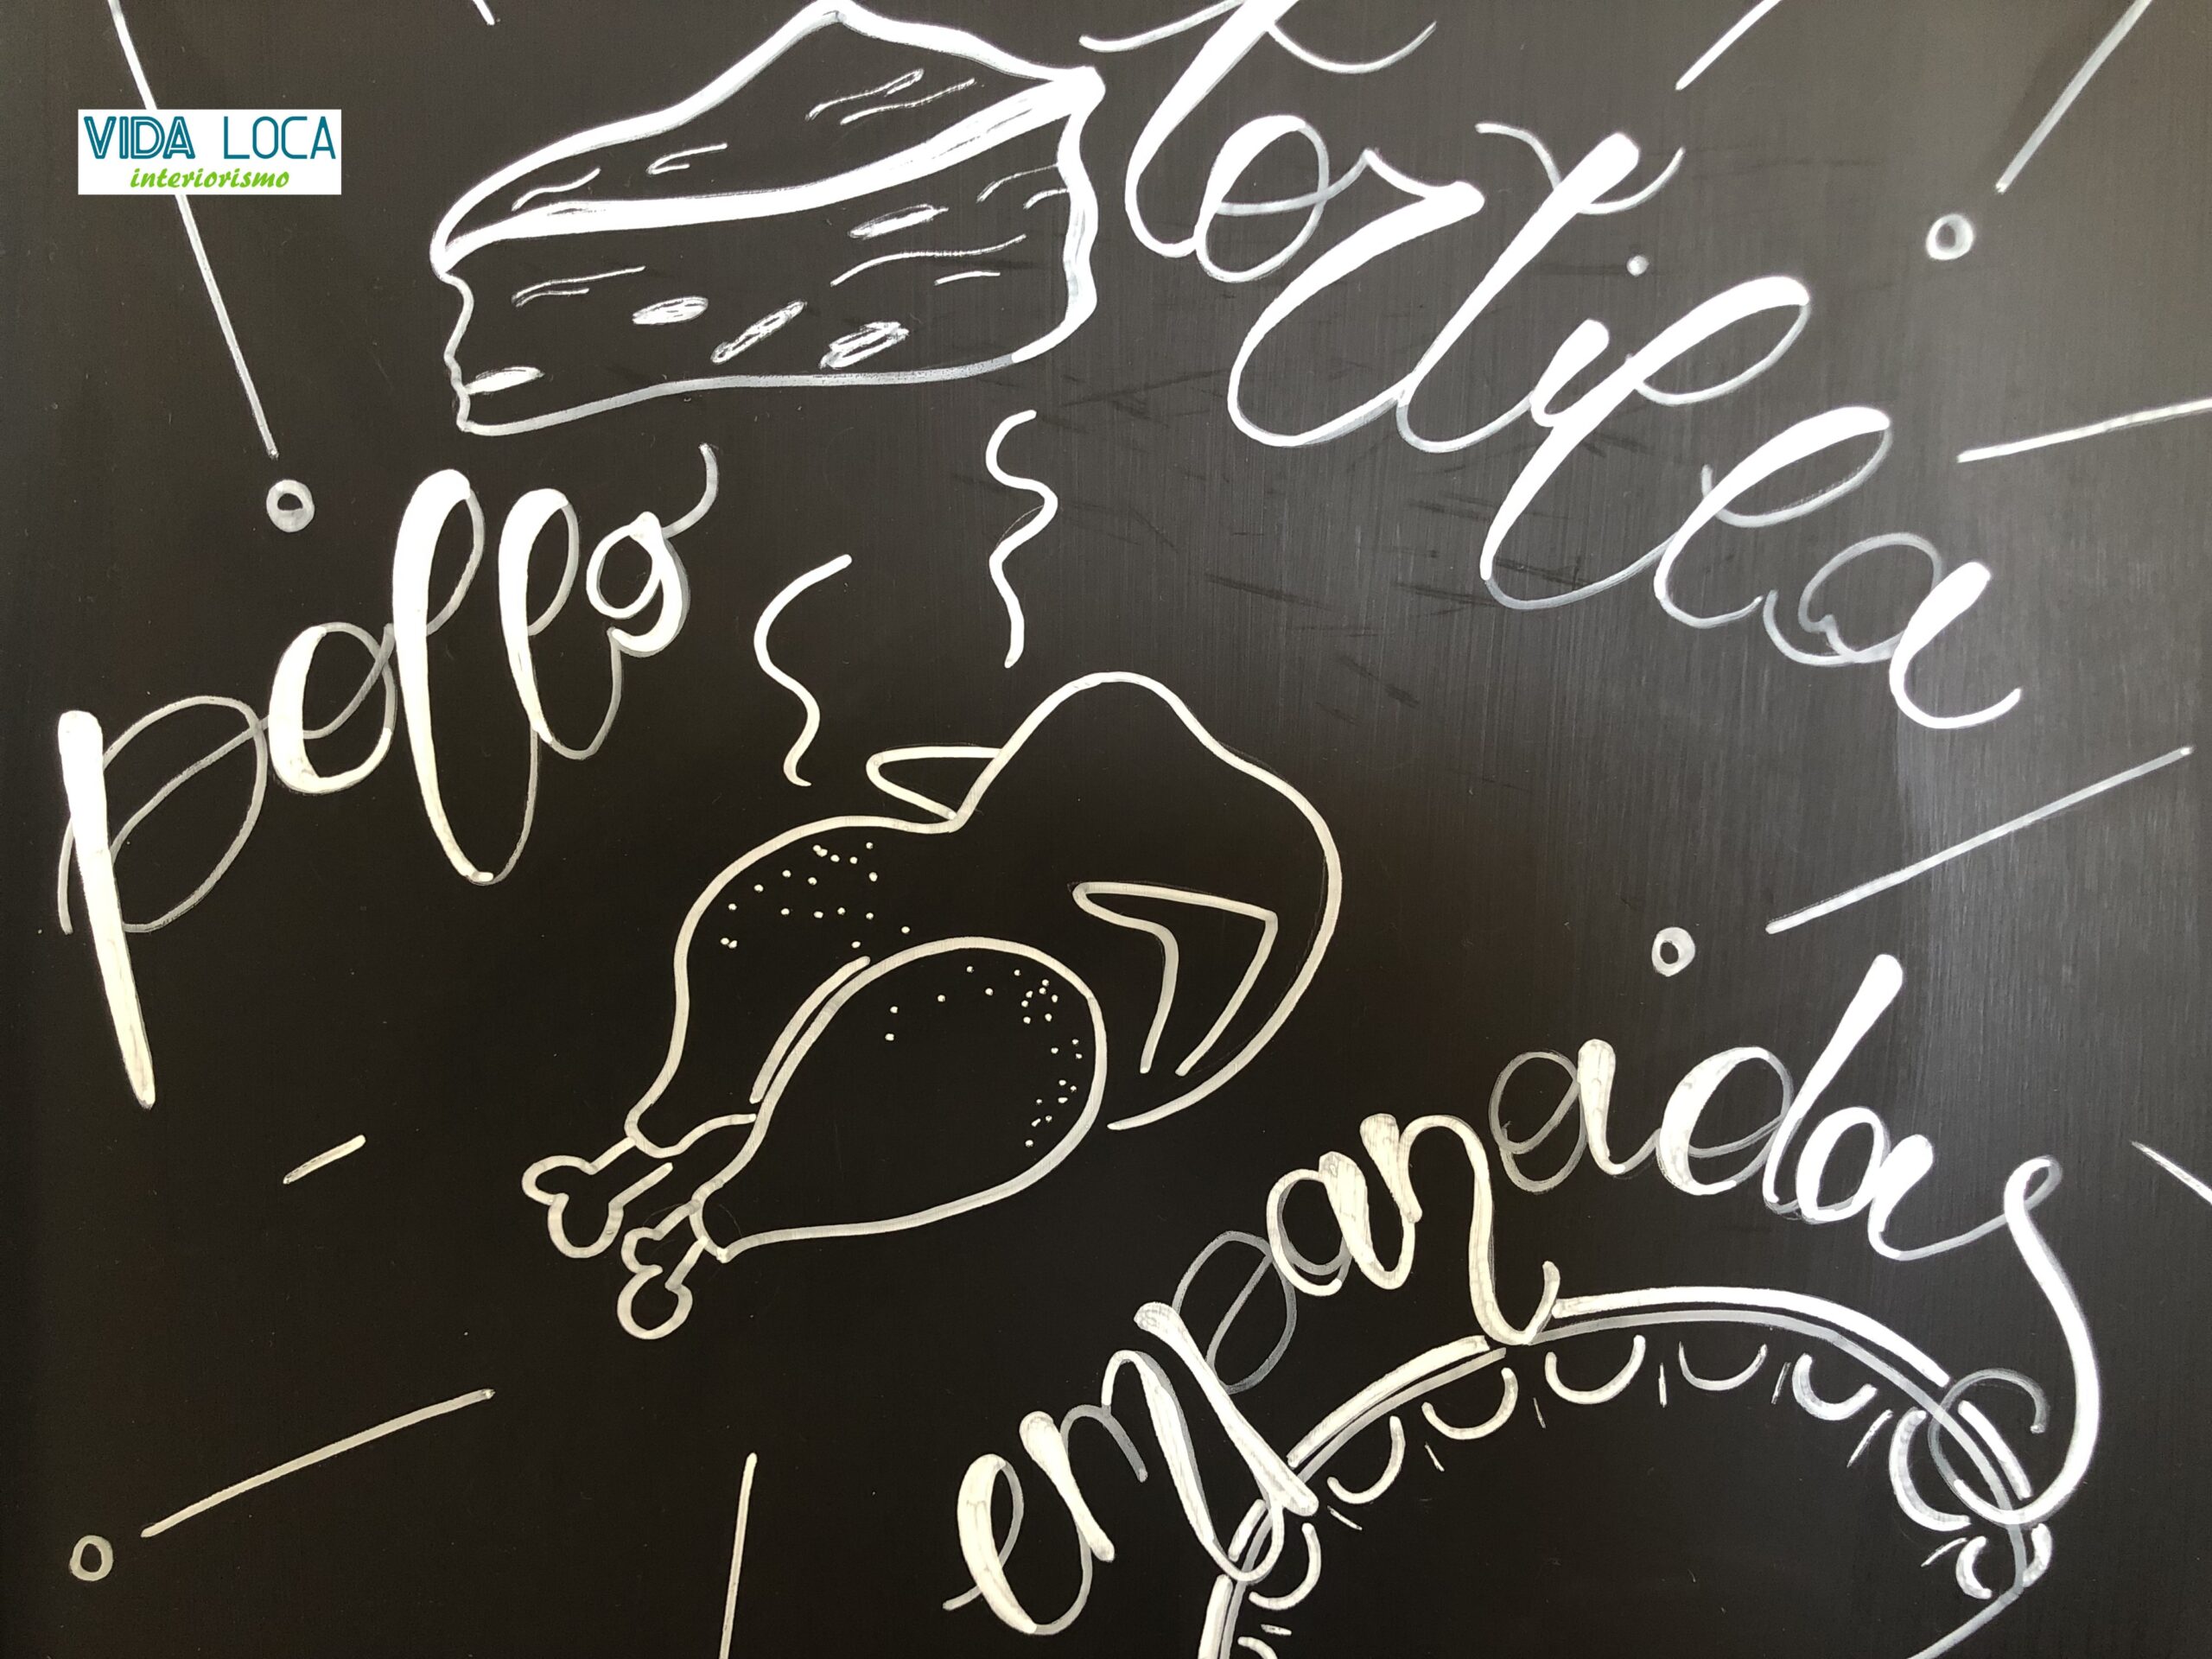 VIDA LOCA
interiorismo
tortilla
pollo
empanadas